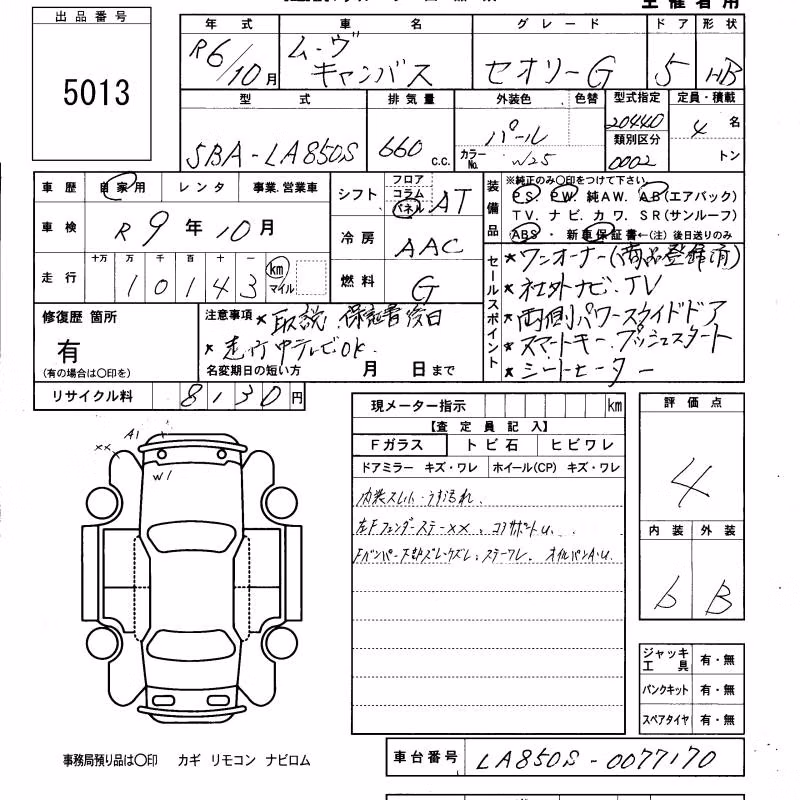 出品番号
5013
年式 車名 グレード ドア 形状
R6/10月 ムーヴ キャンバス セオリーG 5 HB
型式 排気量 外装色 色替 型式指定 定員・積載
5BA-LA850S 660 c.c. パール 20440 4 名
カラーNo. W25 類別区分 0002 トン
車歴 自家用 レンタ 事業.営業車
シフト フロア コラム パネル AT
装備品 ※純正のみ○印をつけて下さい
PS. PW. 純AW. AB(エアバック)
TV. ナビ. カワ. SR(サンルーフ)
ABS・新車保証書←(注)後日送りのみ
車検 R9年10月
冷房 AAC
走行 十万 万 千 百 十 一
10143 km マイル
燃料 G
セールスポイント
★ワンオーナー(商品登録済)
★社外ナビ.TV
★両側パワースライドドア
★スマートキー.プッシュスタート
★シートヒーター
修復歴 箇所
有
(有の場合は○印を)
注意事項 ★取説 保証書後日
★走行中テレビOK.
名変期日の短い方 月 日まで
リサイクル料 8130円
現メーター指示 km
【査定員記入】
Fガラス トビ石 ヒビワレ
ドアミラー キズ・ワレ ホイール(CP) キズ・ワレ
内装スレ・うす汚れ.
左FフェンダーステーXX、コアサポートu.
Fバンパー下部ズレ・クズレ、ステーワレ、オイルパンA・u.
評価点
4
内装 外装
b B
A1
XX
W1
ジャッキ 工具 有・無
パンクキット 有・無
スペアタイヤ 有・無
事務局預り品は○印 カギ リモコン ナビロム
車台番号 LA850S-0077170